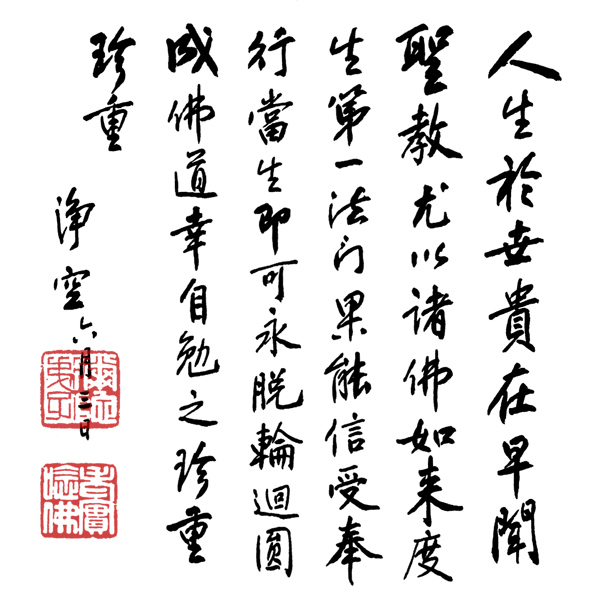 人生於世貴在早聞
聖教尤以諸佛如来度
生第一法门果能信受奉
行當生即可永脱輪迴圓
成佛道幸自勉之珍重
珍重
淨空六月三日
老實念佛